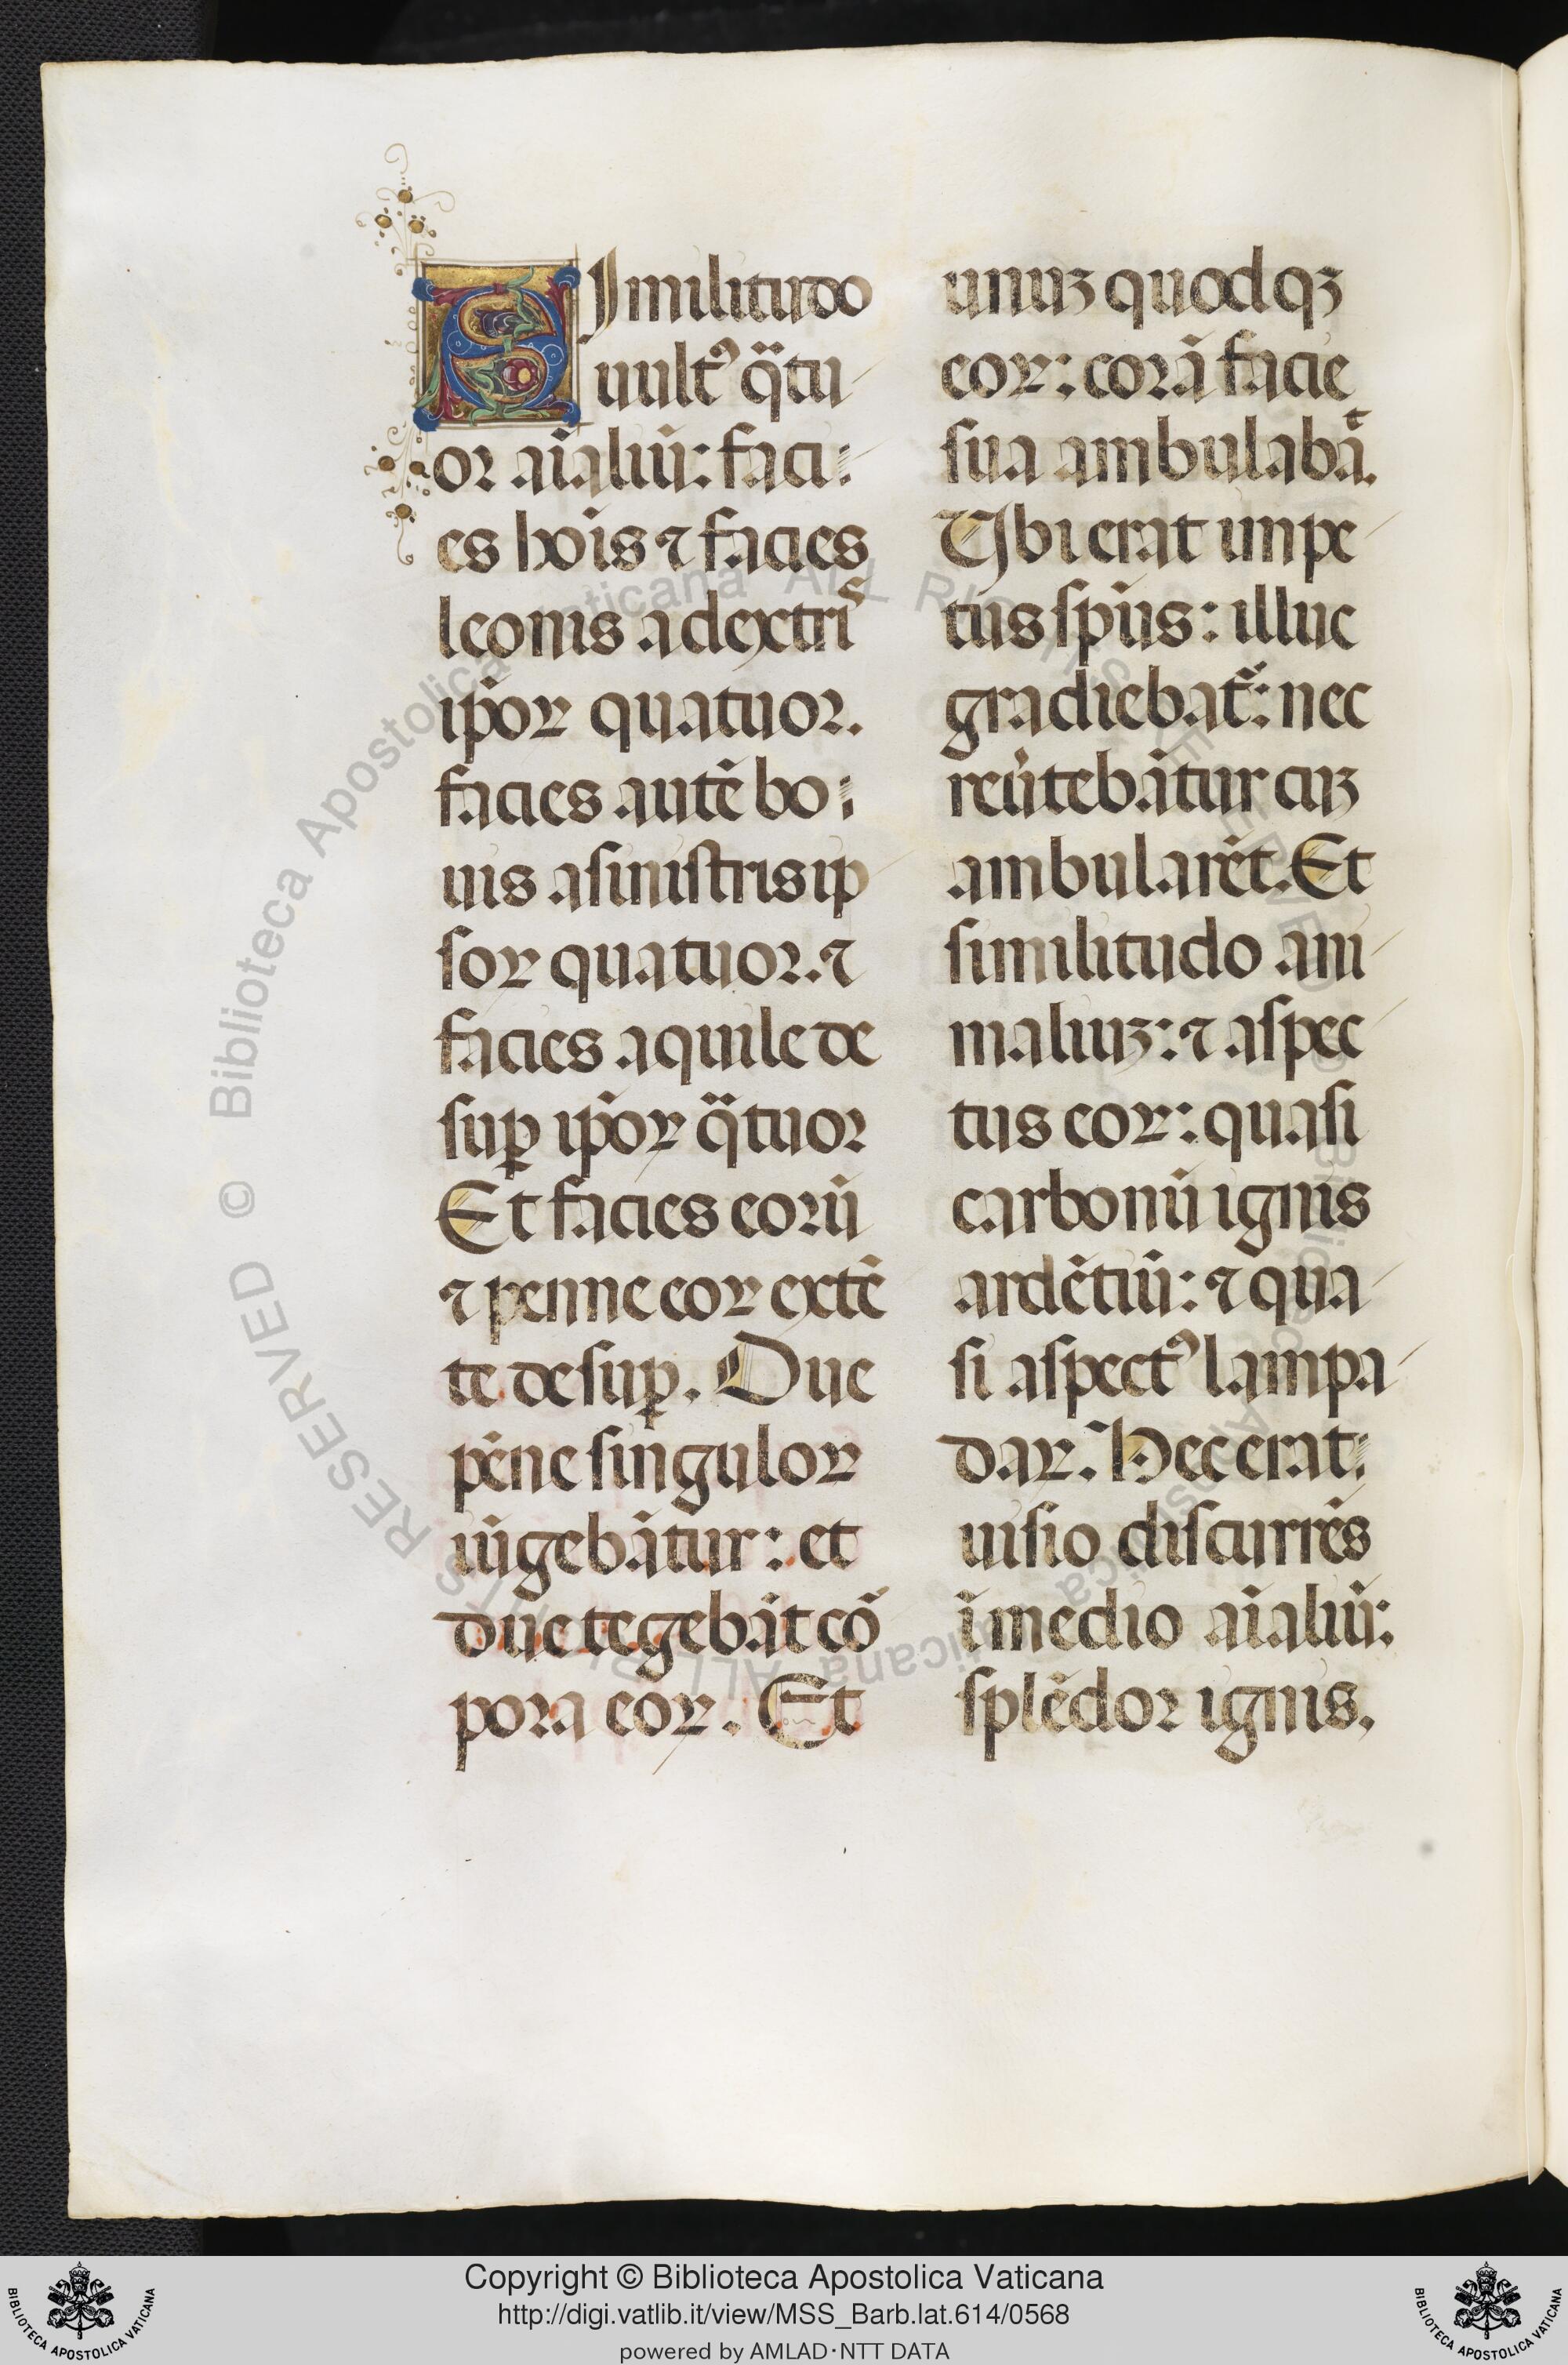 SImilitudo
uultꝰ q̈tu
or aīaliū: faci:
es hoīs ⁊ facies
leonis a dextriˢ
ip̄oꝝ quatuor.
facies autē bo:
uis a sinistris ip
soꝝ quatuor. ⁊
facies aquile de
suꝑ ip̄oꝝ q̈tuor
Et facies eorū
⁊ penne eoꝝ extē
te desuꝑ. Due
pēne singuloꝝ
iūgebātur: et
due tegebāt cō
pora eoꝝ. Et
unuꝫ quodqꝫ
eoꝝ: corā facie
sua ambulabāt.
Ubi erat impe
tus sp̄us: illuc
gradiebat᷑: nec
reūtebātur cuꝫ
ambularēt. Et
similitudo ani
maliuꝫ: ⁊ aspec
tus eoꝝ: quasi
carbonū ignis
ardētiū: ⁊ qua
si aspectꝰ lampa
daꝝ. Hec erat:
uisio discurrēs
ī medio aīaliū:
splēdor ignis.
Copyright © Biblioteca Apostolica Vaticana
http://digi.vatlib.it/view/MSS_Barb.lat.614/0568
powered by AMLAD·NTT DATA
BIBLIOTECA APOSTOLICA VATICANA
BIBLIOTECA APOSTOLICA VATICANA